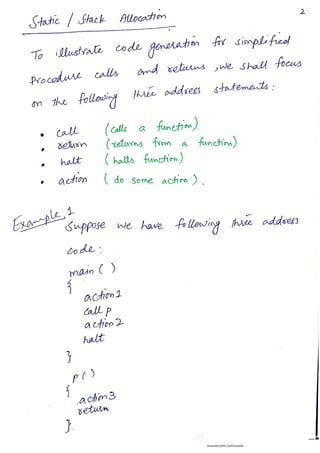 2
Static / Stack Allocation
To illustrate code generation for simplified
Procedure calls and returns, we shall focus
on the following three address statements :
• call (calls a function)
• return (returns from a function)
• halt (halts function)
• action ( do some action ).
Example 1
Suppose we have following three address
code :
main ( )
{
action1
call p
action 2
halt
}
p ( )
{
.action3
return
}.
Scanned with CamScanner